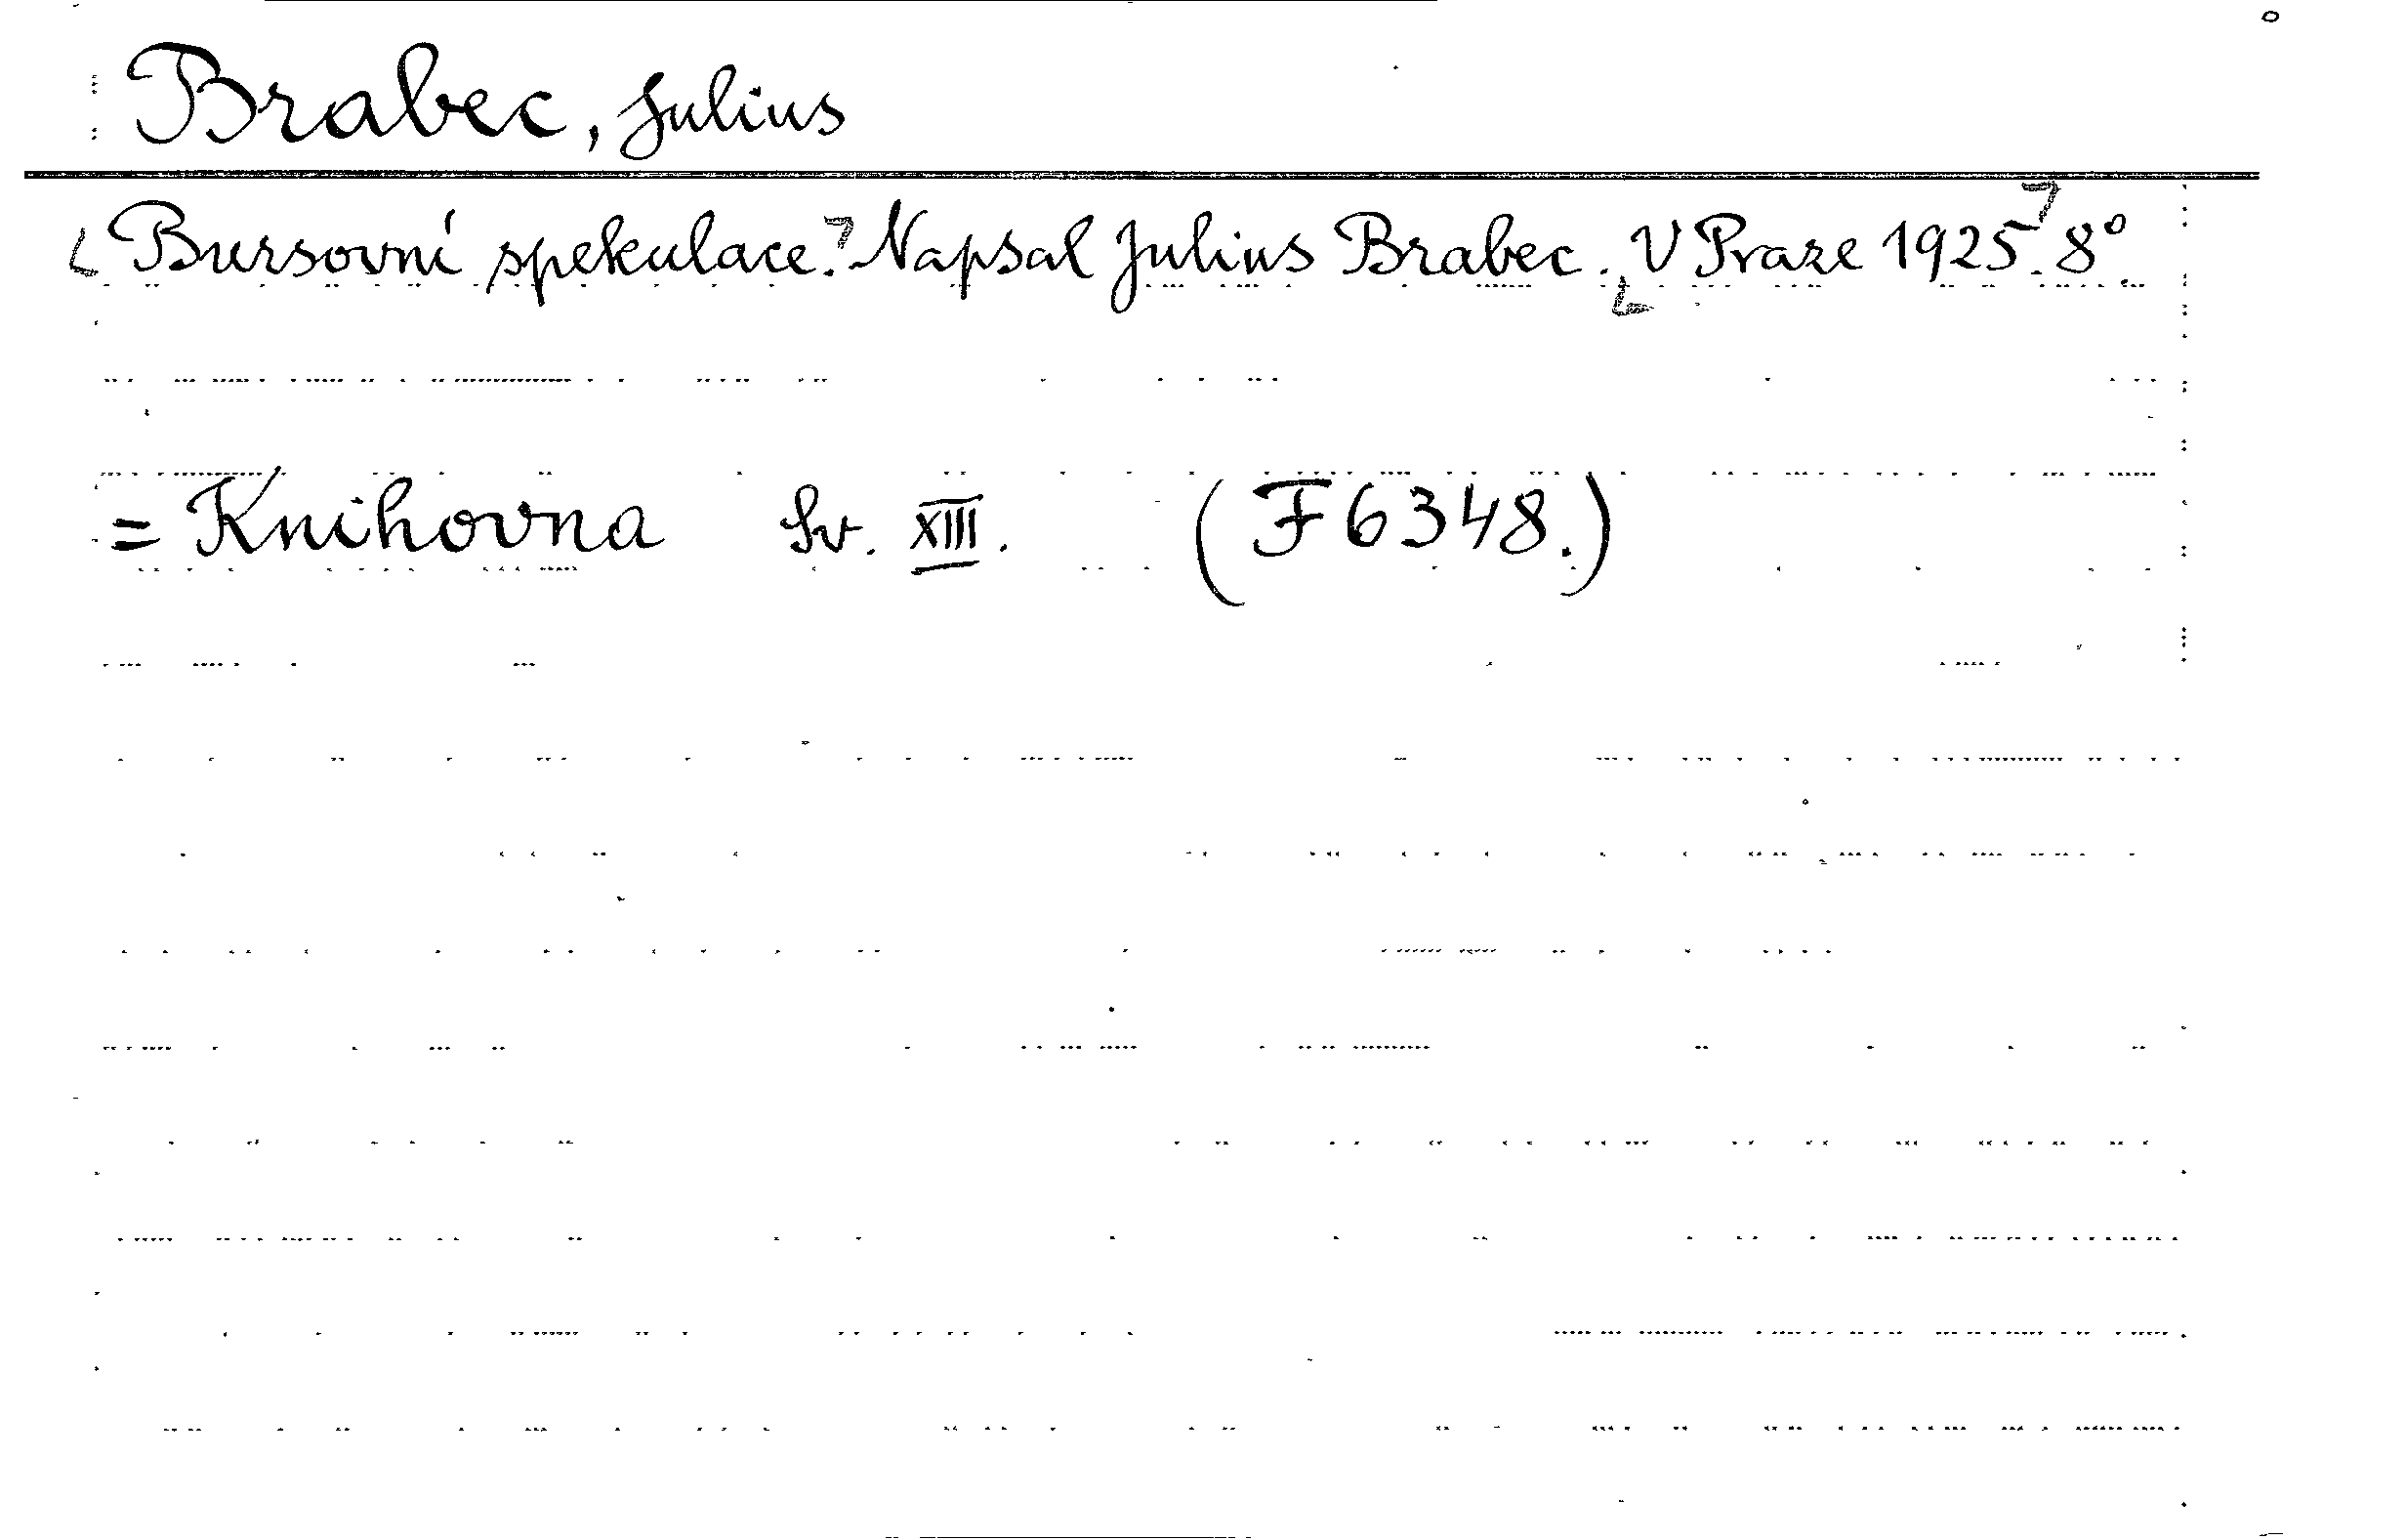 Brabec, Julius
Bursovní spekulace. Napsal Julius Brabec. V Praze 1925. 8°.
= Knihovna Sv. XIII. (F 6348.)